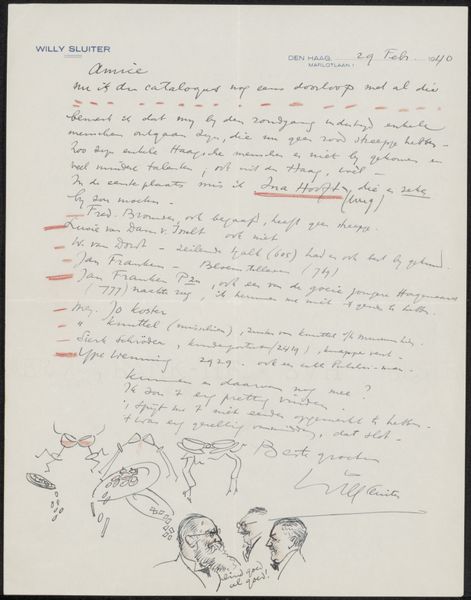 WILLY SLUITER
DEN HAAG, 29 Febr. 1940
MARLOTLAAN 1
Amice
nu ik den catalogus nog eens doorloop met al die
bemerk ik dat my by den rondgang enkele
menschen ontgaan zyn, die nu geen rood streepje hebben.
Zoo zyn enkele Haagsche menschen er niet by gekomen en
veel minder talenten, ook uit den Haag, wel —
In de eerste plaats mis ik Ina Hooft, die er zeker
by zou moeten. (weg)
Fred. Brouwer, ook begaafd, heeft geen streepje.
Lucie van Dam v. Isselt ook niet
W. van Dordt - zeilende (605) had er ook best by gekund.
Jan Franken - Bloem (774)
Jan Franken Pzn, ook een van de goeie jongere Hagenaars
(777) nachtzug, ik herinner me niet 't gezien te hebben.
mej. Jo Koster
" Knuttel (), van Knuttel v/h Museum hier.
Sierk Schröder, (2419), knappe vent -
Ype Wenning 2929. ook een echte schilder-man.
Kunnen er daarvan nog mee?
Ik zou 't erg prettig vinden.
't spyt me 't niet eerder opgemerkt te hebben.
't was erg gezellig, dat slot -
Beste groeten
Willy Sluiter
eind goed
al goed!